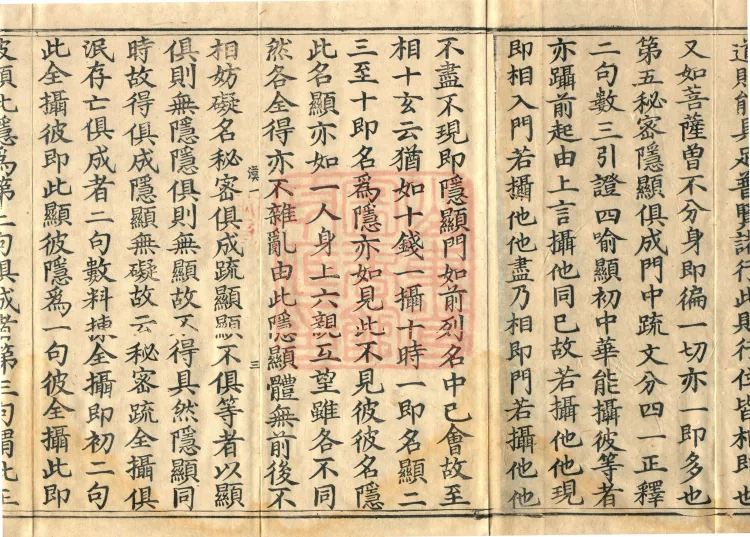 道則能具足普賢諸行此具行位皆相即也
又如菩薩曾不分身即徧一切亦一即多也
第五秘密隱顯俱成門中疏文分四一正釋
二句數三引證四喻顯初中華能攝彼等者
亦躡前起由上言攝他同已故若攝他他現
即相入門若攝他他盡乃相即門若攝他他
不盡不現即隱顯門如前列名中已會故至
相十玄云猶如十錢一攝十時一即名顯二
三至十即名爲隱亦如見此不見彼彼名隱
此名顯亦如一人身上六親互望雖各不同
然各全得亦不雜亂由此隱顯體無前後不
漠一
三
相妨礙名秘密俱成疏顯顯不俱等者以顯
俱則無隱隱俱則無顯故不得具然隱顯同
時故得俱成隱顯無礙故云秘密疏全攝俱
泯存亡俱成者二句數料揀全攝即初二句
此全攝彼即此顯彼隱爲一句彼全攝此即
彼顯此隱爲第二句俱成者第三句謂此正